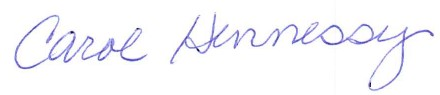 Carol Hennessy